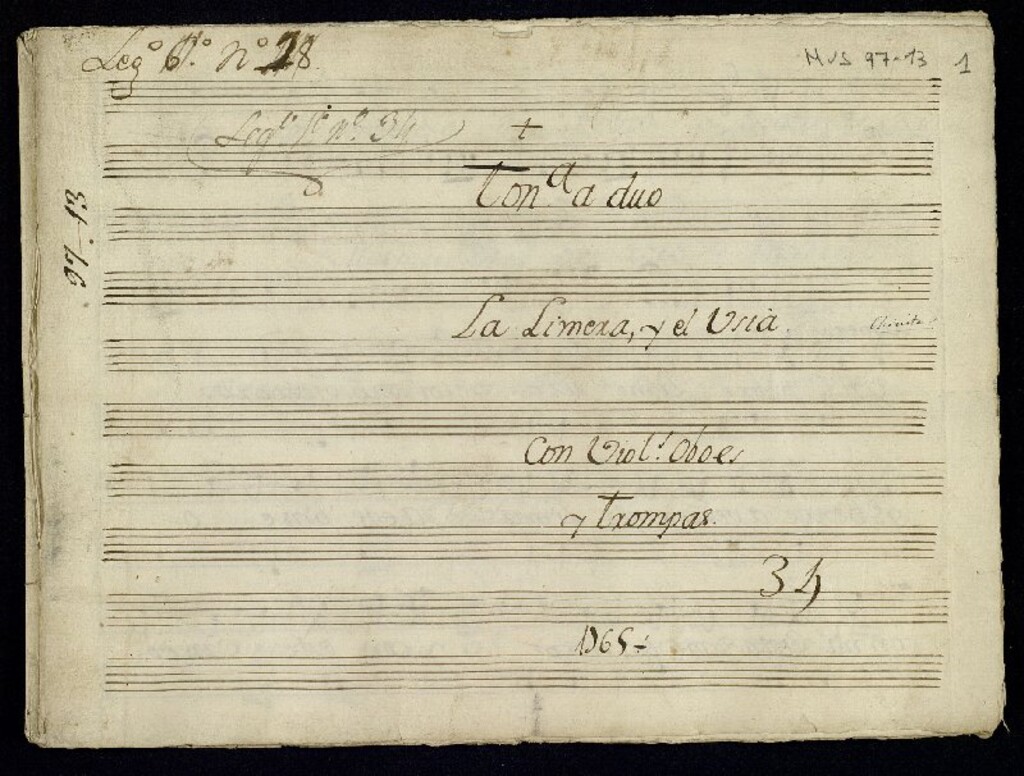 Legº 6º. Nº 18.
MUS 97-13 1
Legº 1º nº 34
+
Ton.ª a duo
97-13
La Limera, y el Usia.
Con Viol.s Oboes
y Trompas.
34
1765